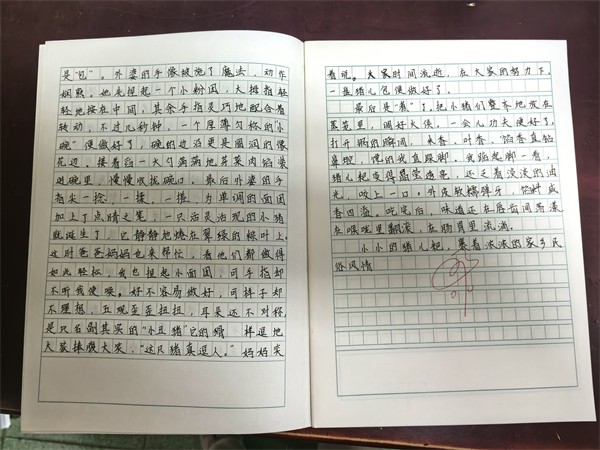 是“包”。外婆的手像被施了魔法，动作
娴熟。她先捏起一个小粉团，大拇指轻
轻地按在中间，其余手指灵巧地配合着
转动，不过几秒钟，一个厚薄匀称的“小
碗”便做好了，碗的边沿更是圆润的像
花边，接着舀一大勺满满地荠菜肉馅装
进碗里，慢慢收拢碗口，最后外婆的手
指尖一捻、一揉、一搓，为单调的面团
加上了点睛之笔，一只活灵活现的小猪
就诞生了，它静静地烧在翠绿的粽叶上。
这时爸爸妈妈也来帮忙，看他们都做得
如此轻松，我也捏起小面团，可手指却
不听我使唤。好不容易做好，可样子却
不理想，五观歪歪扭扭，耳朵还不对称，
是只名副其实的“小丑猪”它的模样逗地
大家捧腹大笑，“这只猪真逗人。”妈妈笑
着说。大家时间流逝，在大家的努力下，
一盘猪儿包便做好了。
最后是“蒸”了，把小猪们整齐地放在
蒸笼里，调好大火，一会儿功夫便好了，
打开锅的瞬间，米香、叶香、馅香直钻
鼻腔，馋的我直跺脚，我踮起脚一看，
猪儿粑变得晶莹透亮，还泛着淡淡的油
光，咬上一口，外皮软糯弹牙，馅料咸
香四溢，吃完后，味道还在唇齿间荡漾
在喉咙里翻滚，在肠胃里流淌。
小小的猪儿粑，裹着浓浓的家乡民
俗风情